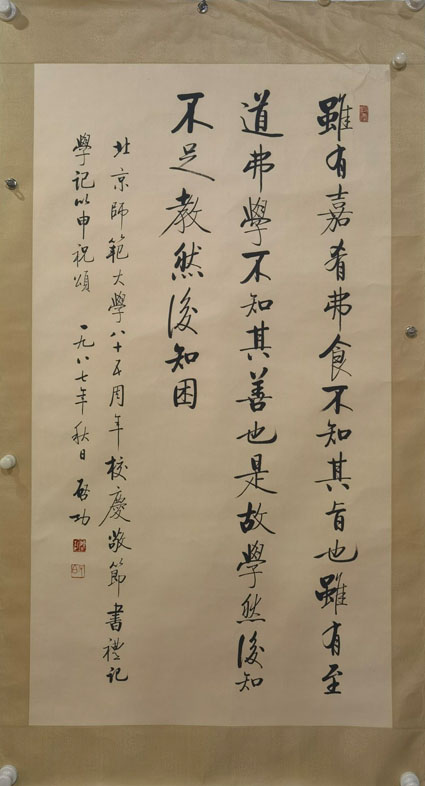 雖有嘉肴弗食不知其旨也雖有至
道弗學不知其善也是故學然後知
不足教然後知困
北京師範大學八十五周年校慶敬節書禮記
學記以申祝頌 一九八七年秋日 啟功